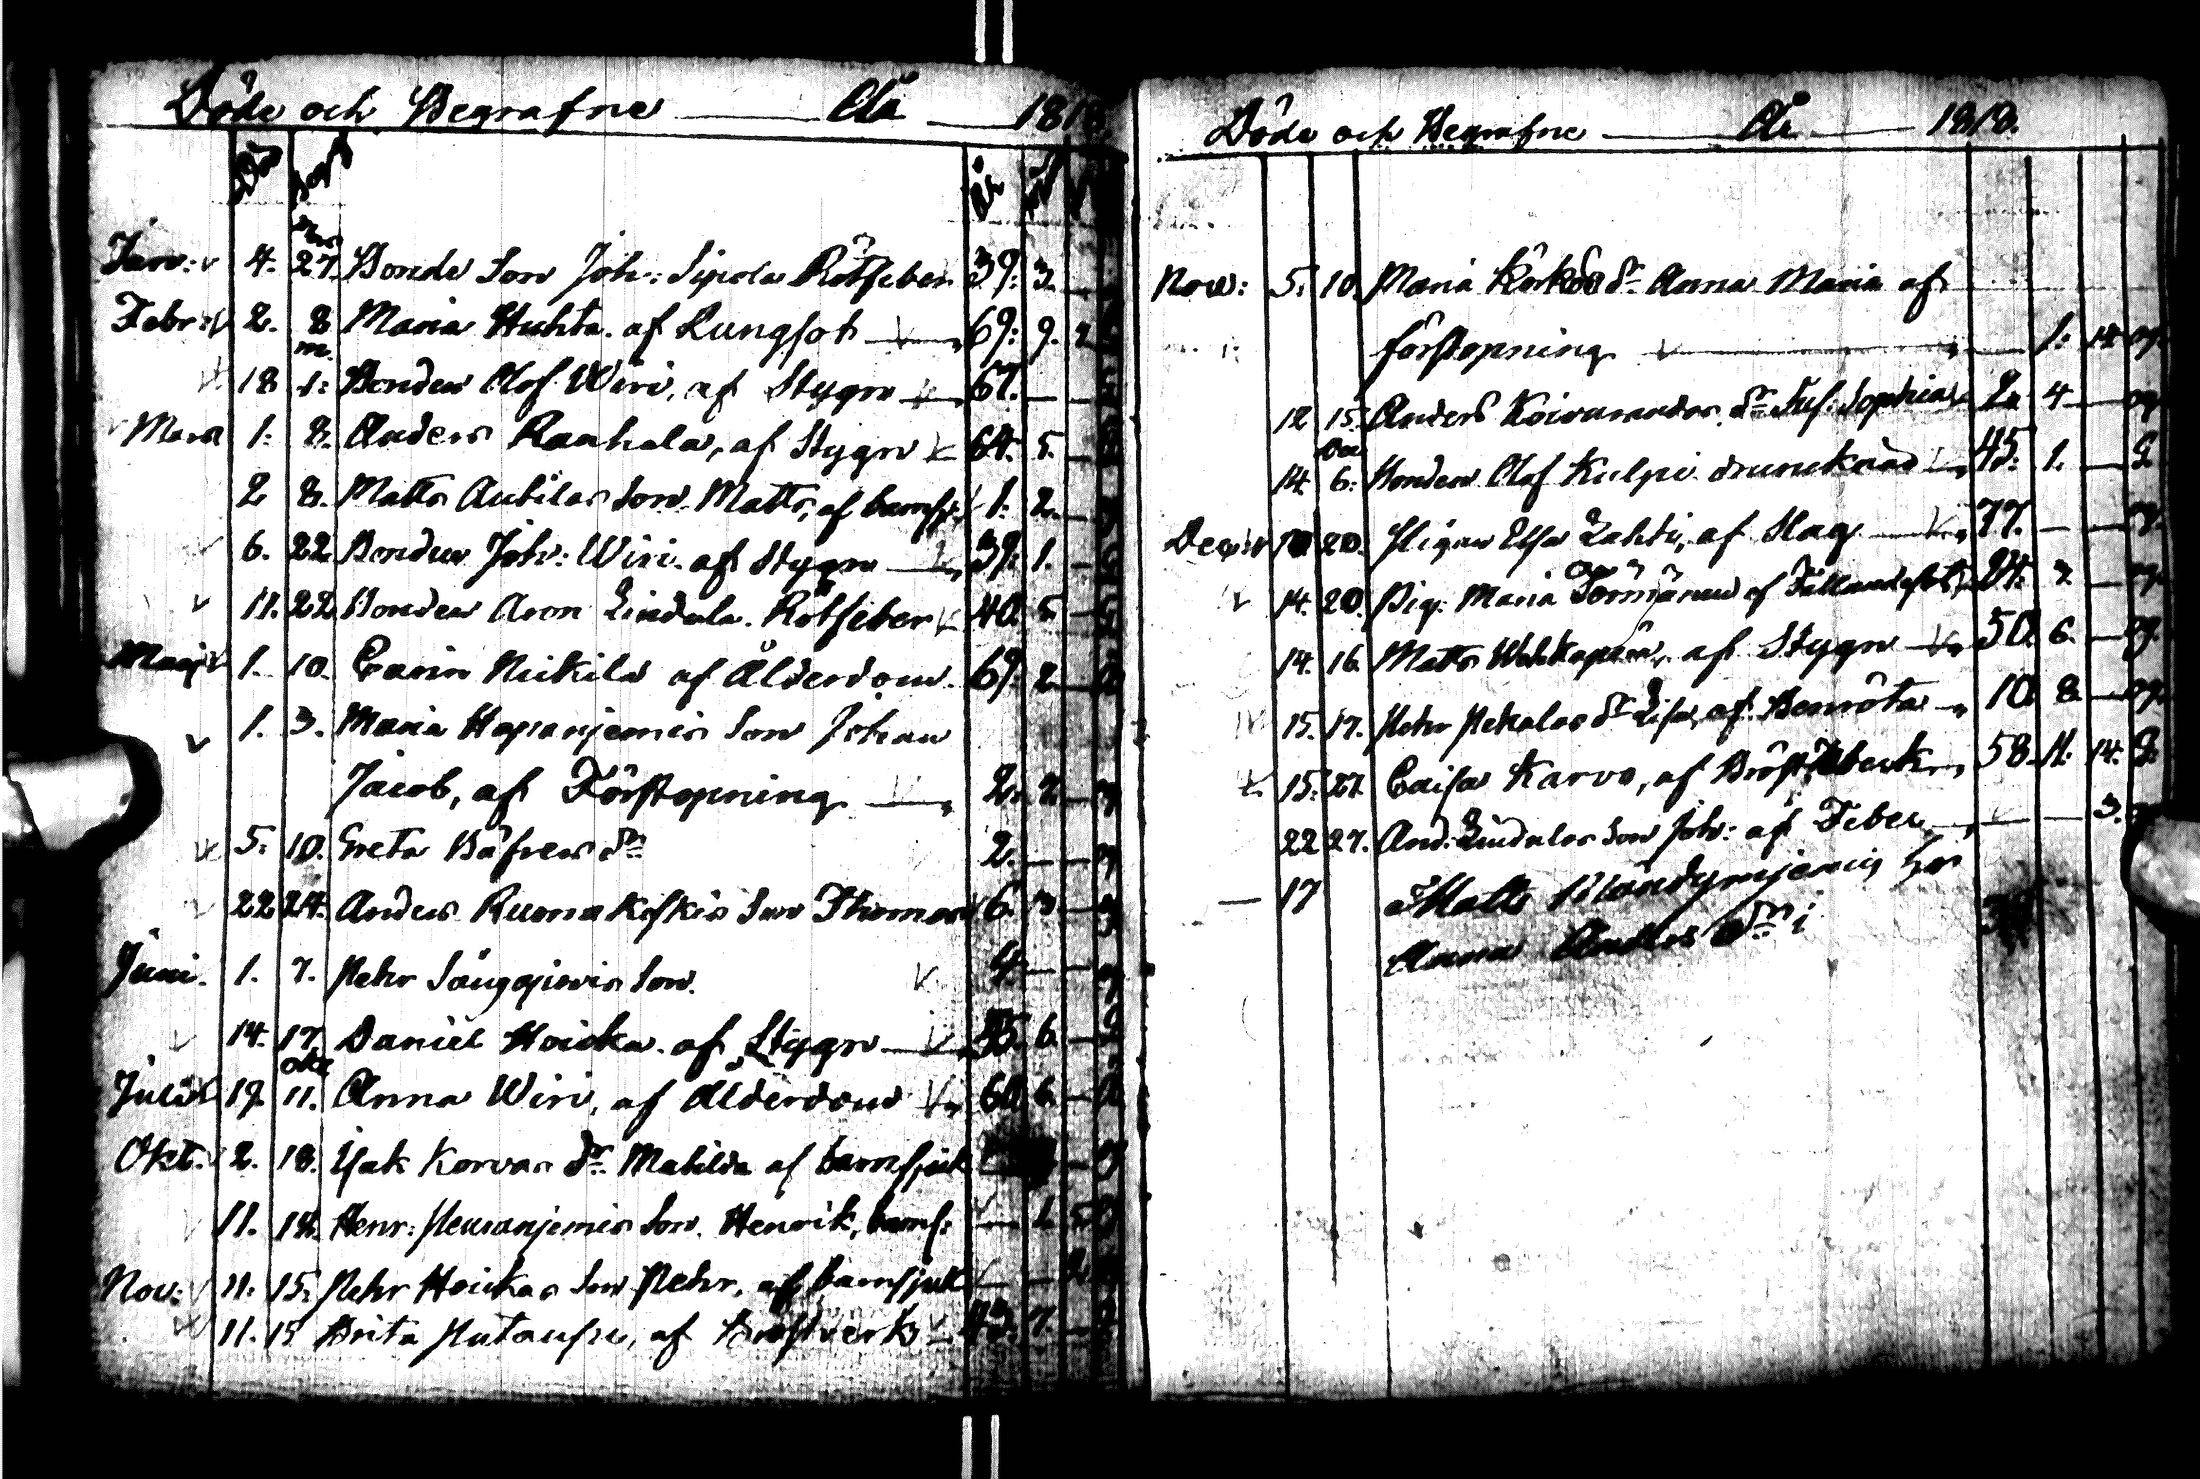 Döde och Begrafne Åå 1818.
Död begr År
Janv: 4. 27. Bonde Son Joh: Sipola Rötfeber 39: 3.
Febr: 2. 8 Maria Huhta. af Lungsot 69: 9. 2
m.
18 1: Bonden Olof Wiri, af Stygn 67.
Mars 1: 8. Anders Raahala, af Stygn 64. 5.
2 8. Matts Autilas Son Matts, af barnsj. 1: 2.
6. 22 Bonden Joh: Wiri. af Stygn 39: 1.
11. 22 Bonden Aron Lindala. Rötfeber 40. 5
Maij 1. 10. Carin Nickila af Ålderdom. 69. 2
1. 3. Maria Hapanjemis Son Johan
Jacob, af Förstopning 2. 2.
5. 10. Greta Bäfvers dr 2.
22 24. Anders Ruonakoskis Son Thomas 6. 3
Juni. 1. 7. Pehr Son. 4
14. 17. Daniel Hoicka. af Stygn 55. 6
okt
Julii 19 11. Anna Wiri, af Ålderdom 60 6
Okt. 2. 18. Isak Korvas dr Matilda af barnsjuk
11. 18. Henr: Son. Henrik, barns: 1. 5
Nov: 11. 15. Pehr Hoickas Son Pehr, af barnsjuk 2
11. 15 Brita af Bröstverk 7.
Döde och Begrafne År 1818.
Nov: 5. 10. Maria Körkös dr Anna Maria af
förstopning 1: 14
12 15. Anders Koivurandas dr Sophia 2. 4
Dec
14 6: Bonden Olof Kulpi drunknad 45: 1.
Dec: 10 20. Pigan Elsa Lahti, af Slag 77.
14. 20. Pig: Maria Törmänen af Fallandesot 24. 7.
14. 16. Matts af Stygn 50. 6.
15. 17. Pehr Pekalas dr Lisa, af Benröta 10 8.
15. 27. Caisa Karvo, af Bröstwerk 58. 11. 14.
22 27. And: Lindalas Son Joh: af Feber 3.
17 Matts
Anna Anders dr